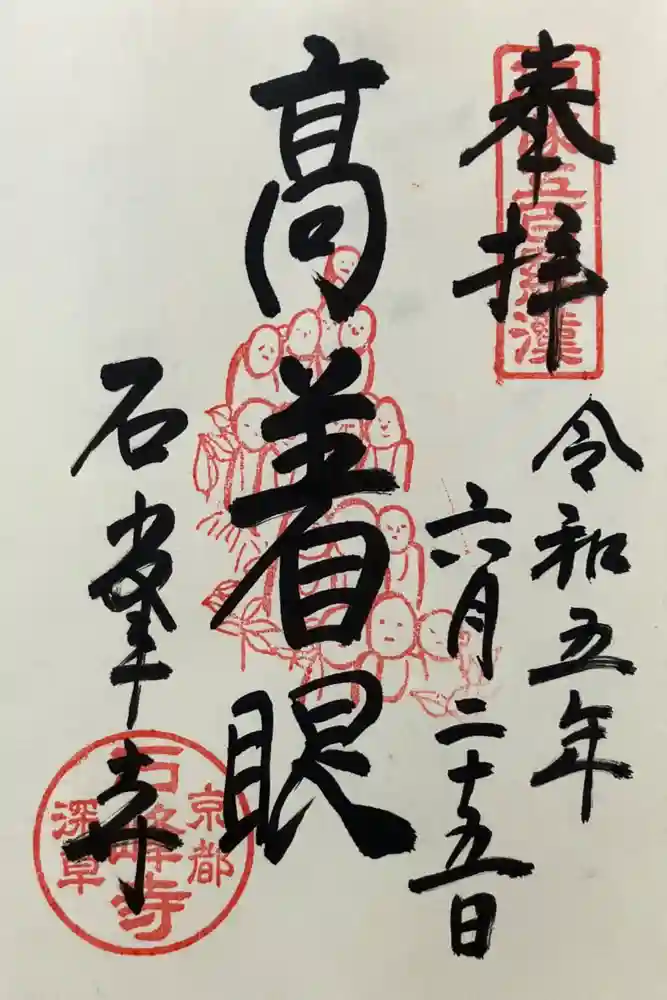 奉拝
五百羅漢
令和五年
六月二十五日
高着眼
石峯寺
京都
石峰寺
深草